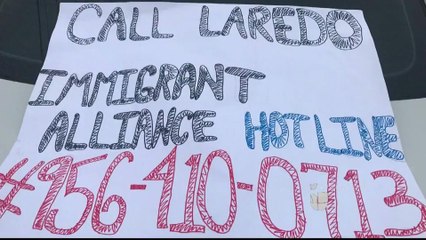 CALL LAREDO
IMMIGRANT
ALLIANCE HOTLINE
#956-410-0713